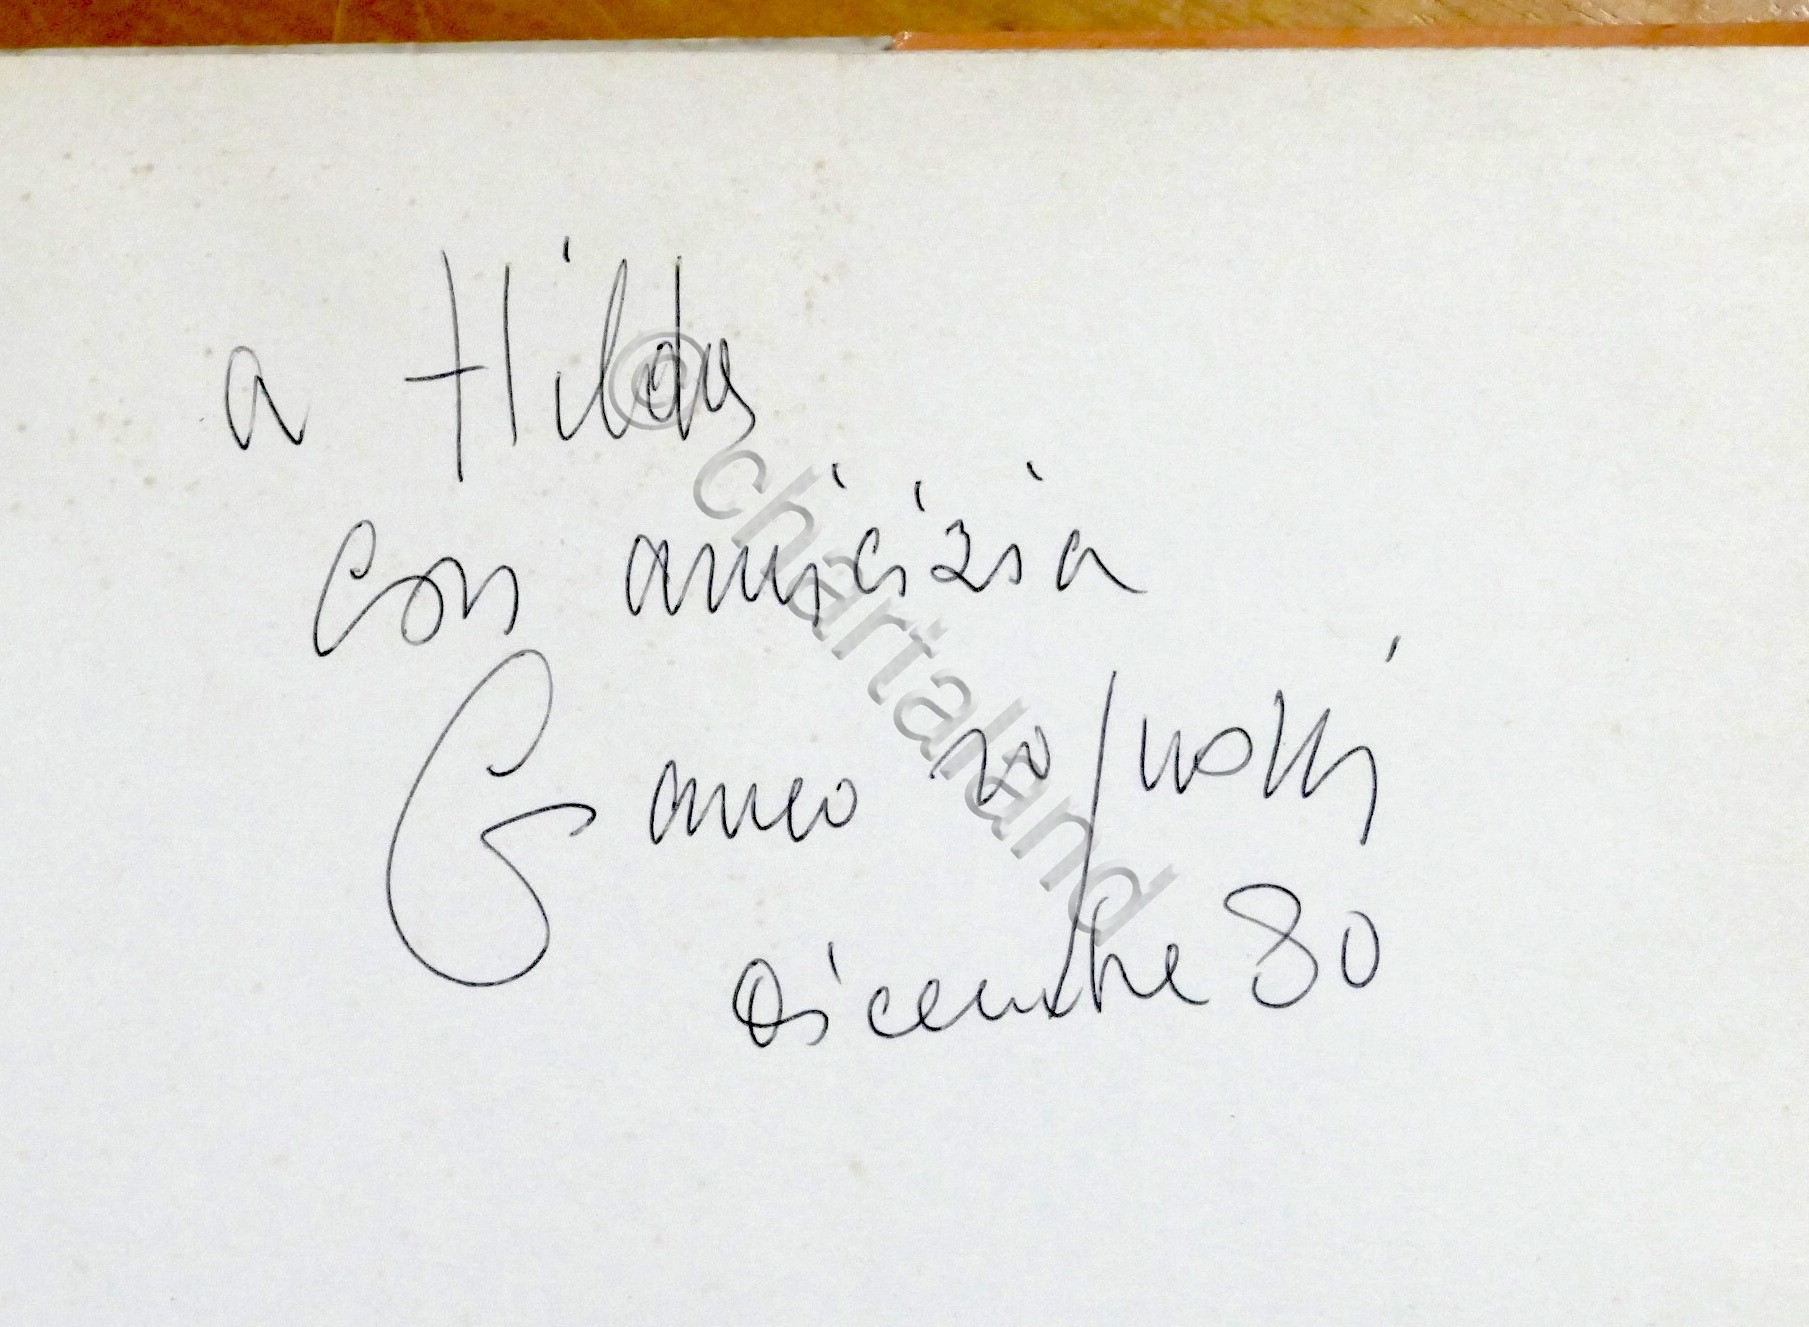 a Hilda
con amicizia
Franco Rognoni
Dicembre 80
© chartaland